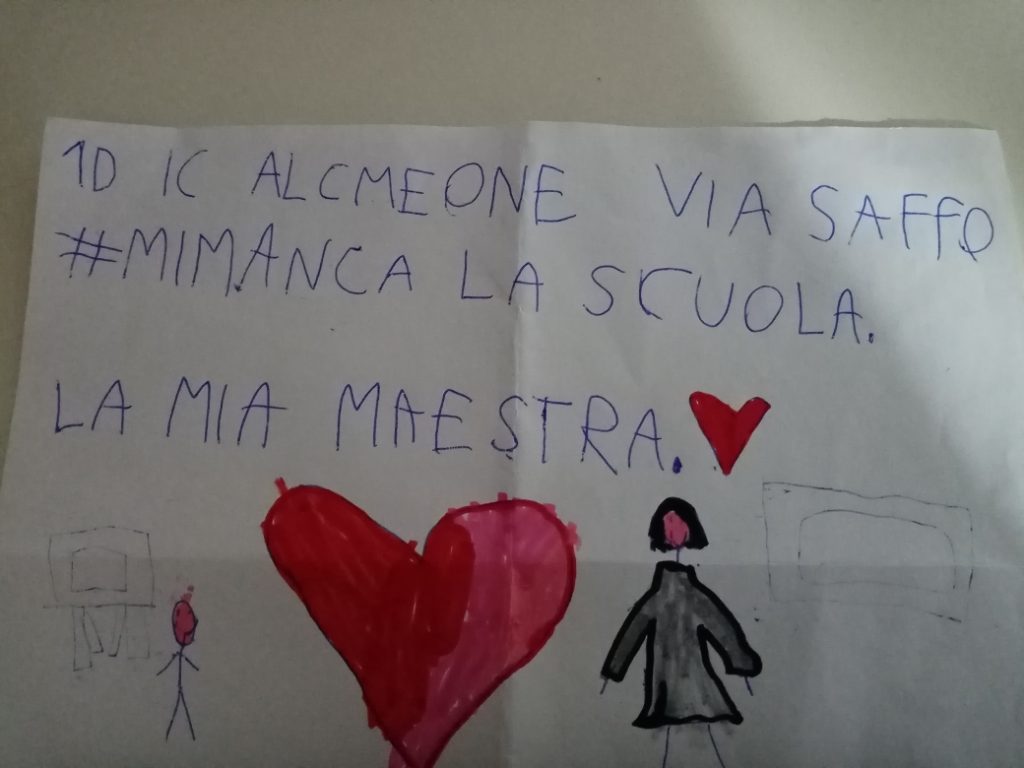 1D IC ALCMEONE VIA SAFFO
#MIMANCA LA SCUOLA.
LA MIA MAESTRA.